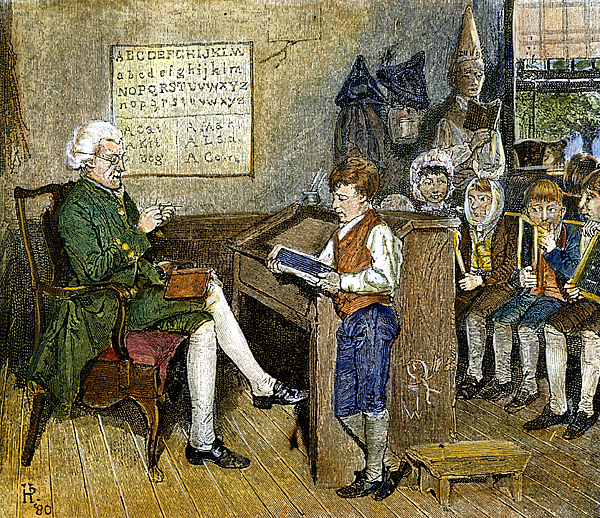 ABCDEFGHIJKLM
abcdefghijklm
NOPQRSTUVWXYZ
nopqrstuvwxyz
A Cat
A Man
A Kit
A Lad
A Cow
PR
'80
W